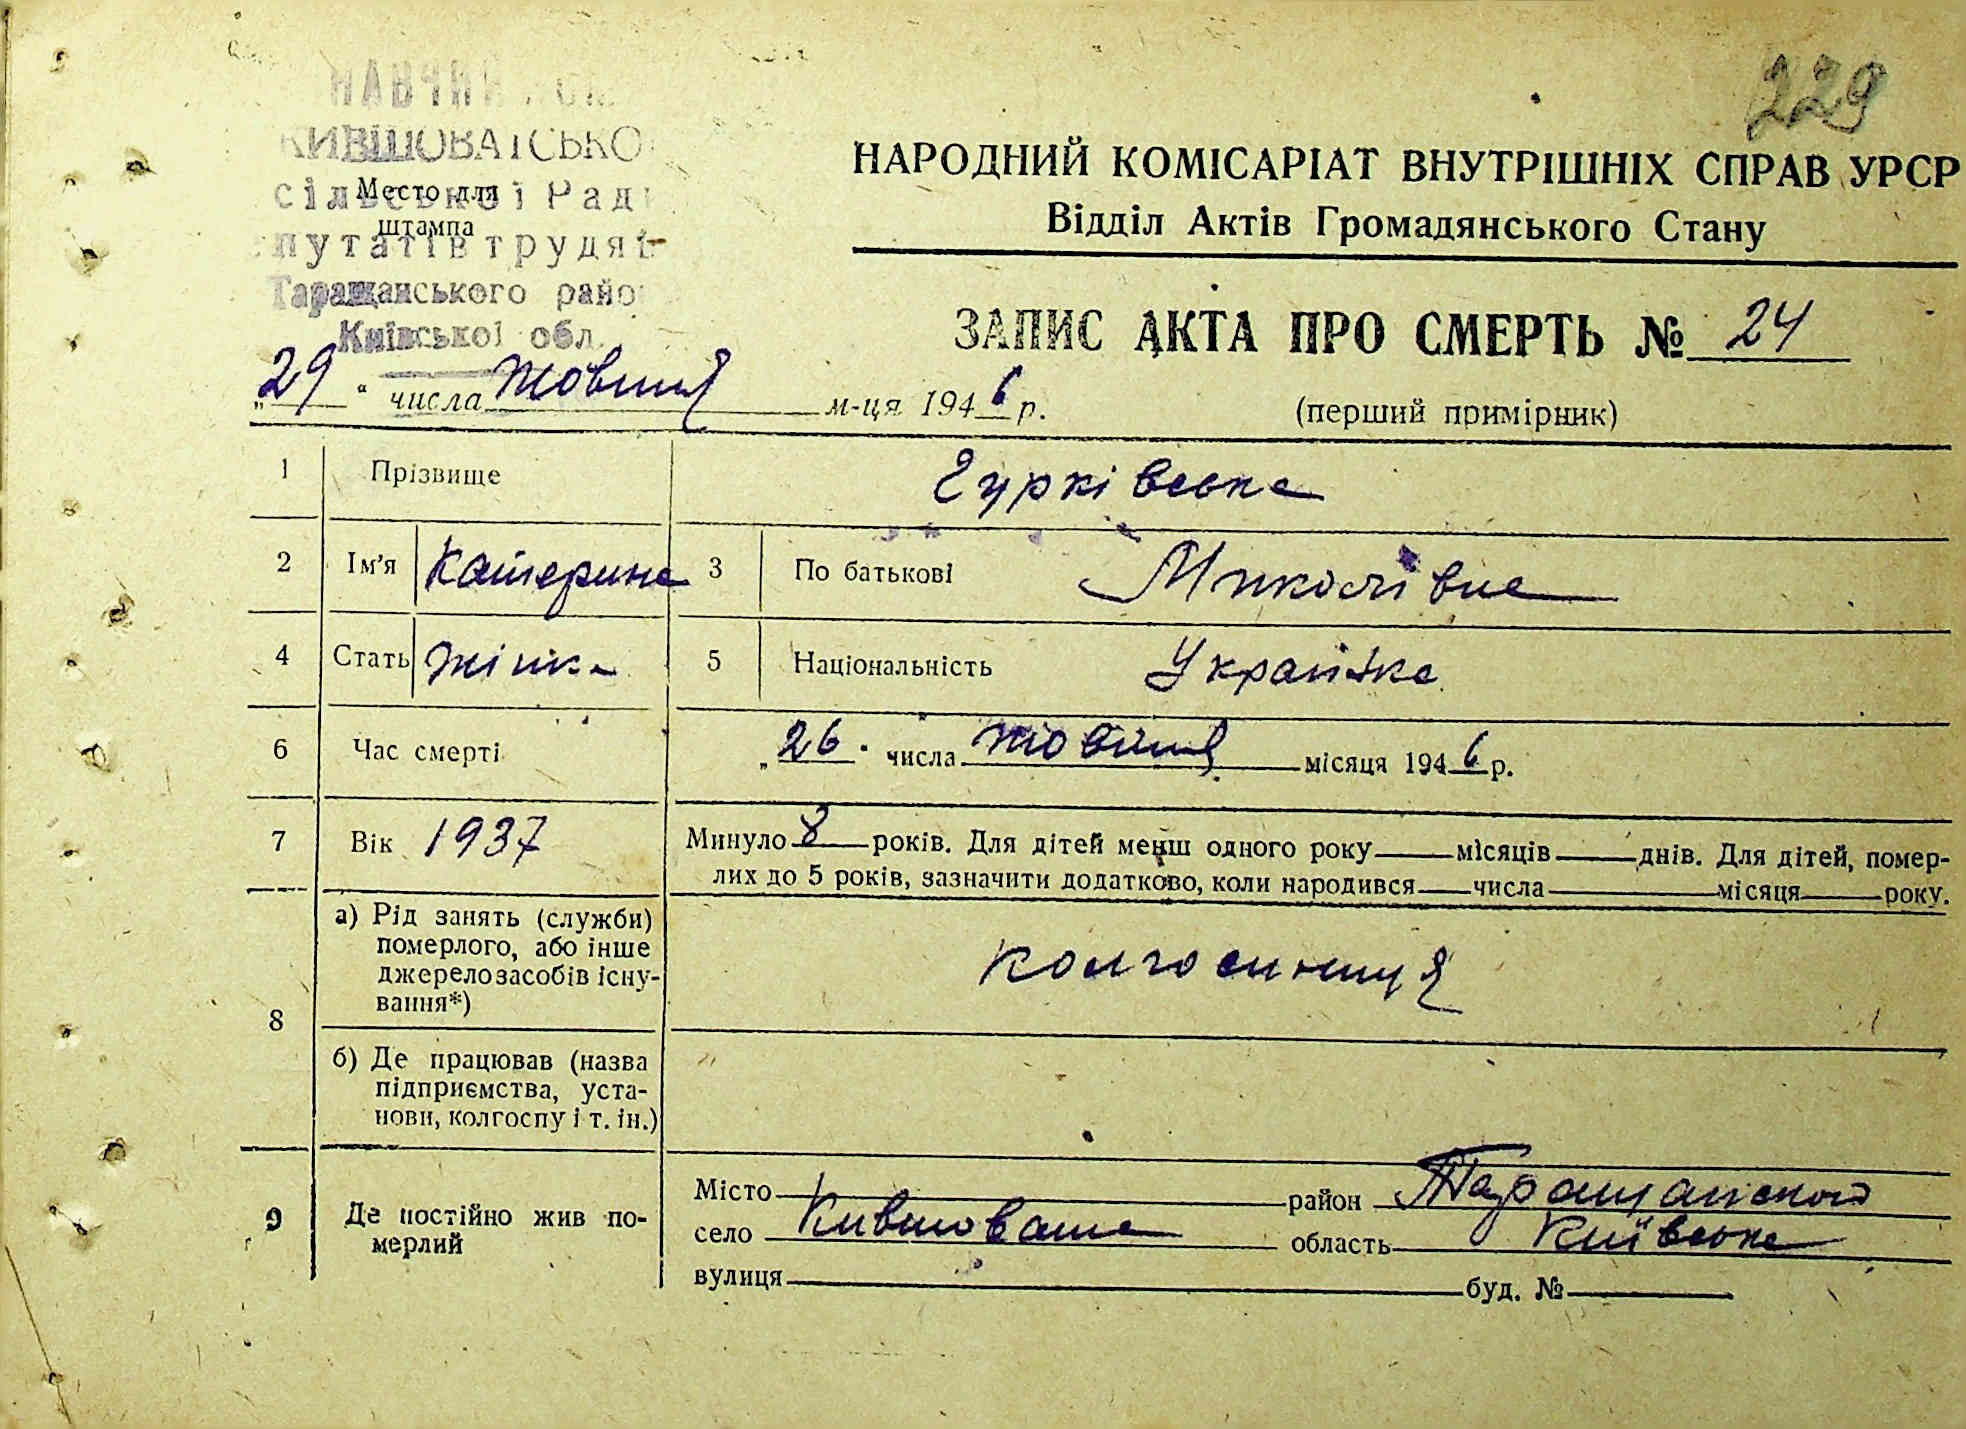 229
КИВШОВАТСЬКО
сільської Рад
путатів трудя
Таращанського райо
Київської обл.
Место для
штампа
НАРОДНИЙ КОМІСАРІАТ ВНУТРІШНІХ СПРАВ УРСР
Відділ Актів Громадянського Стану
ЗАПИС АКТА ПРО СМЕРТЬ № 24
„29“ числа Жовтня м-ця 1946 р.
(перший примірник)
1 Прізвище Гурківська
2 Ім'я Катерина 3 По батькові Миколівна
4 Стать жінка 5 Національність Українка
6 Час смерті „26. числа жовтня місяця 1946 р.
7 Вік 1937 Минуло 8 років. Для дітей менш одного року місяців днів. Для дітей, помер-
лих до 5 років, зазначити додатково, коли народився числа місяця року.
8 а) Рід занять (служби)
померлого, або інше
джерело засобів існу-
вання*)
колгоспниця
б) Де працював (назва
підприємства, уста-
нови, колгоспу і т. ін.)
9 Де постійно жив по-
мерлий
Місто район Таращанского
село Кившовата область Київська
вулиця буд. №